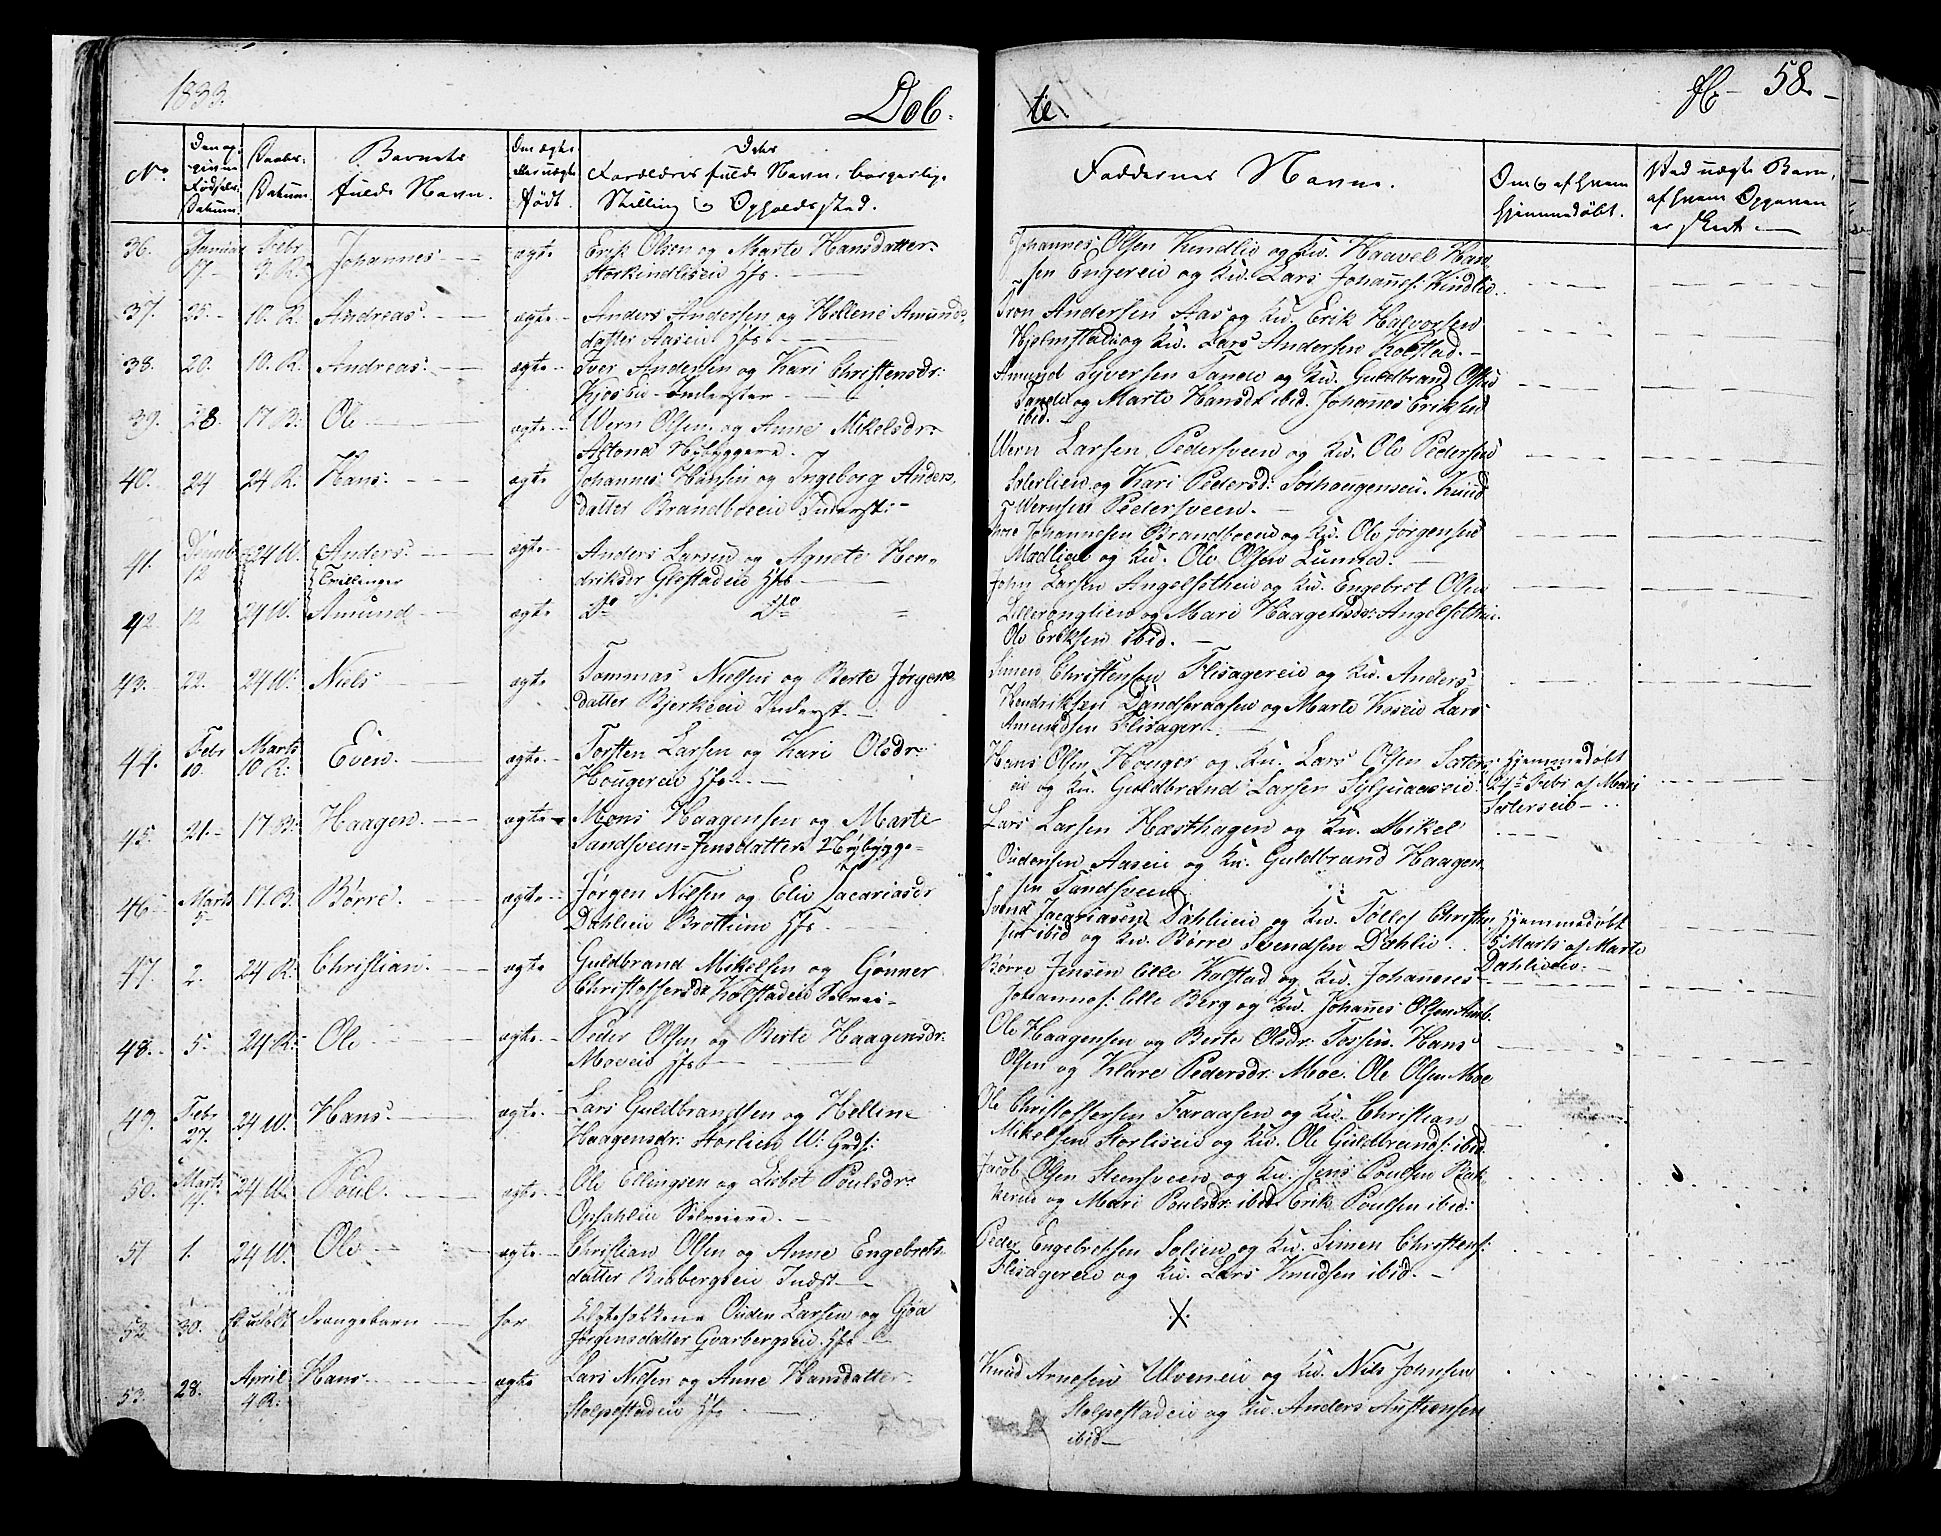 1833.
Døb-
te.
58.
No
Den opgivne Fødsels Datum.
Daabs-Datum.
Barnets fulde Navn.
Om ægte eller uægte født.
Dets Forældres fulde Navn, borgerlige Stilling og Opholdssted.
Faddernes Navne.
Om og af hvem hjemmedøbt.
Ved uægte Barn, af hvem Opgaven er skeet.
36. Januar 17 Febr 3. R. Johannes ægte Erik Olsen og Marte Hansdatter
Storkindlieie Hfs.
Johannes Olsen Kindlie og Kv. Haavel Han-
sen Engereie og Kv. Lars Johannes: Kindlie.
37. 25. 10. R. Andreas. ægte Anders Andersen og Hellene Amunds-
datter Aaseie Hfs
Tron Andersen Aas og Kv. Erik Halvorsen
Hjelmstadeie og Kv. Lars Andersen Kolstad.
38. 20. 10. R. Andreas. ægte Iver Andersen og Kari Christensdr:
Kjos Eie Inderster
Amund Syversen og Kv. Guldbrand Olsen
og Marte Hansdr ibid. Johannes Eriksen
ibid.
39. 28. 17 B. Ole ægte Wern Olsen og Anne Mikelsdr
Astona Nybyggere.
Wern Larsen Pedersveen og Kv. Ole Pedersen
og Kari Pedersd: Knud
Wernsen Pedersveen.
40. 24 24 R. Hans. ægte Johannes Hansen og Ingeborg Anders-
datter Brandboeie Inderst:
Johannesen Brandboeie og Kv. Ole Jørgensen
og Kv. Ole Olsen Lunde.
41. 12 24 W. Anders. ægte Anders Larsen og Agnete Hen-
driksdr Glestadeie Hfs
Tvillinger
John Larsen Angelsetheie og Kv. Engebret Olsen
og Mari Haagensdr: Angelsetheie.
Ole Eriksen ibid.
42. 12 24 W. Amund ægte Do Do
43. 22. 24 W. Niels ægte Tommas Nielsen og Berte Jørgens-
datter Bjerkeeie Inderst.
Simen Christensen Flisagereie og Kv. Anders
Hendriksen og Marte Lars
Amundsen Flisager.
44. Febr 10. Marts 10 R: Even. ægte Torsten Larsen og Kari Olsdr
Hougereie Hfs
Hans Olsen Houger og Kv. Lars Olsen Sæters-
eie og Kv. Guldbrand Larsen Syljuaaseie
Hjemmedøbt
24de Febr af Mari
Sæterseie
45. 21. 17 B. Haagen. ægte Mons Haagensen og Marte
Sandsveen Jensdatter Nybygge-
Lars Larsen Hæsthagen og Kv. Mikel
Oudensen Aaseie og Kv. Guldbrand Haagen-
sen Sandsveen
46. Marts 5 17. B. Børre. ægte Jørgen Nilsen og Elie Zacariasdr
Dahlieie Brøttum Hfs
Svend Zacariasen Dahlieie og Kv. Tollef Christen-
sen ibid og Kv. Børre Svendsen Dæhlie.
Hjemmedøbt
5 Marts af Marte
Dahlieeie
47. 2. 24 R. Christian. ægte Guldbrand Mikelsen og Gønner
Christoffersdr Kolstadeie Selveie
Børre Jensen lille Kolstad og Kv. Johannes
Johannes: lille Berg og Kv. Johanes Olsen
48. 5. 24 R. Ole ægte Peder Olsen og Berte Haagensdr:
Moeeie Hfs
Ole Haagensen og Berte Olsdr: Hans
Olsen og Klare Pedersdr: Moe. Ole Olsen Moe
49. Febr 27. 24 W. Hans. ægte Lars Guldbrandsen og Helline
Haagensdr: Storlien W: Grds:
Ole Christoffersen Faraasen og Kv. Christian
Mikelsen Storlieeie og Kv. Ole Guldbrands: ibid
50. Marts 14. 24 W. Poul. ægte Ole Ellingsen og Lisbet Poulsdr
Opsahleie Selveiere.
Jacob Olsen Steensveen og Kv. Jens Poulsen Bak-
kereie og Mari Poulsdr: ibid Erik Poulsen ibid:
51 1. 24 W. Ole ægte Christian Olsen og Anne Engebrets-
datter Bribergseie Indst
Peder Engebretsen og Kv. Simen Christens:
Flisagereie og Kv. Lars Knudsen ibid.
52 30. udøbt Drengebarn for Ægtefolkene Ouden Larsen og Gøa
Jørgensdatter Gvarbergseie Hfs
X.
53. 28. April 4 R: Hans ægte Lars Nilsen og Anne Hansdatter
Stolpestadeie Hfs
Knud Arnesen Ulveneie og Kv. Nils Johnsen
Stolpestadeie og Kv. Anders Austensen
ibid